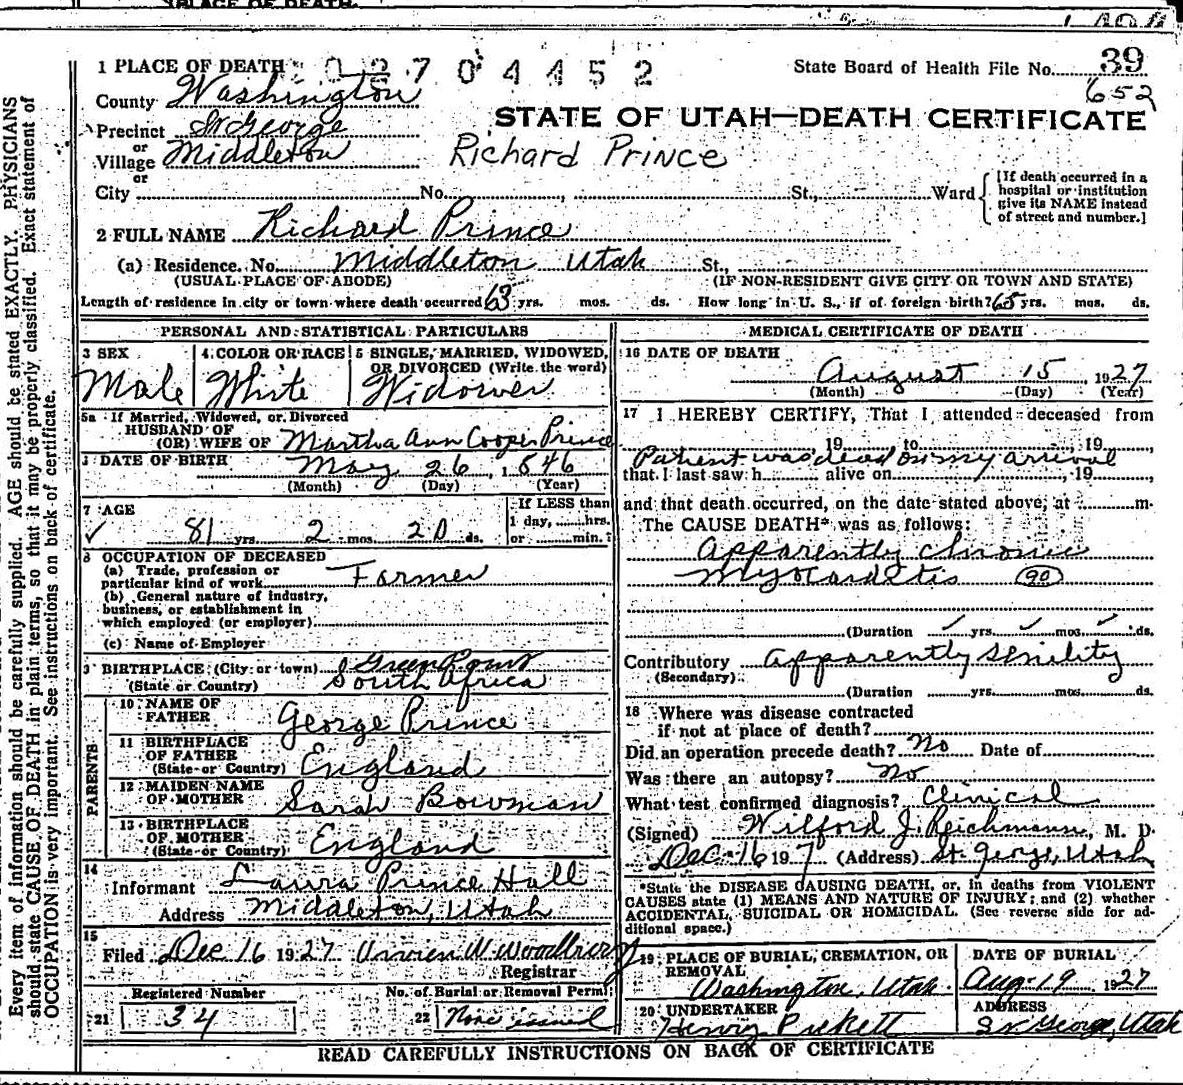 PLACE OF DEATH
1 PLACE OF DEATH 0 2 7 0 4 4 5 2
State Board of Health File No. 39
652
County Washington
STATE OF UTAH—DEATH CERTIFICATE
Precinct St George
or
Village Middleton
Richard Prince
or
City No. St., Ward
[If death occurred in a
hospital or institution
give its NAME instead
of street and number.]
2 FULL NAME Richard Prince
(a) Residence. No. Middleton Utah St.,
(USUAL PLACE OF ABODE) (IF NON-RESIDENT GIVE CITY OR TOWN AND STATE)
Length of residence in city or town where death occurred 63 yrs. mos. ds. How long in U. S., if of foreign birth? 65 yrs. mos. ds.
PERSONAL AND STATISTICAL PARTICULARS
3 SEX
Male
4 COLOR OR RACE
White
5 SINGLE, MARRIED, WIDOWED,
OR DIVORCED (Write the word)
Widower
5a If Married, Widowed, or Divorced
HUSBAND OF
(OR) WIFE OF Martha Ann Cooper Prince
DATE OF BIRTH May 26, 1846
(Month) (Day) (Year)
7 AGE
81 yrs. 2 mos. 20 ds.
If LESS than
1 day, hrs.
or min.?
8 OCCUPATION OF DECEASED
(a) Trade, profession or
particular kind of work Farmer
(b) General nature of industry,
business, or establishment in
which employed (or employer)
(c) Name of Employer
9 BIRTHPLACE (City or town) Green Point
(State or Country) South Africa
PARENTS
10 NAME OF
FATHER George Prince
11 BIRTHPLACE
OF FATHER
(State or Country) England
12 MAIDEN NAME
OF MOTHER Sarah Bowman
13 BIRTHPLACE
OF MOTHER
(State or Country) England
14
Informant Laura Prince Hall
Address Middleton, Utah
15
Filed Dec 16 1927 W Woodbury
Registrar
Registered Number
21 34
No. of Burial or Removal Permit
22 None issued
MEDICAL CERTIFICATE OF DEATH
16 DATE OF DEATH
August 15, 1927
(Month) (Day) (Year)
17 I HEREBY CERTIFY, That I attended deceased from
19 to 19
Patient was dead on my arrival
that I last saw h alive on , 19
and that death occurred, on the date stated above, at m.
The CAUSE DEATH* was as follows:
Apparently chronic
Myocardetis 90
(Duration yrs. mos. ds.
Contributory Apparently Senility
(Secondary)
(Duration yrs. mos. ds.
18 Where was disease contracted
if not at place of death?
Did an operation precede death? No Date of
Was there an autopsy? No
What test confirmed diagnosis? Clinical
(Signed) Wilford J. Reichmann, M. D.
Dec. 16 197 (Address) St. George, Utah
*State the DISEASE CAUSING DEATH, or, in deaths from VIOLENT
CAUSES state (1) MEANS AND NATURE OF INJURY; and (2) whether
ACCIDENTAL, SUICIDAL OR HOMICIDAL. (See reverse side for ad-
ditional space.)
19 PLACE OF BURIAL, CREMATION, OR
REMOVAL
Washington, Utah
DATE OF BURIAL
Aug 19 1927
20 UNDERTAKER
Henry Pickett
ADDRESS
St George, Utah
READ CAREFULLY INSTRUCTIONS ON BACK OF CERTIFICATE
Every item of information should be carefully supplied. AGE should be stated EXACTLY. PHYSICIANS
should state CAUSE OF DEATH in plain terms, so that it may be properly classified. Exact statement of
OCCUPATION is very important. See instructions on back of certificate.